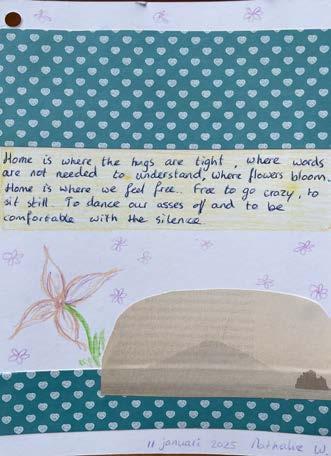 Home is where the hugs are tight, where words
are not needed to understand, where flowers bloom.
Home is where we feel free. Free to go crazy, to
sit still. To dance our asses off and to be
comfortable with the silence.
11 januari 2025 Nathalie W.